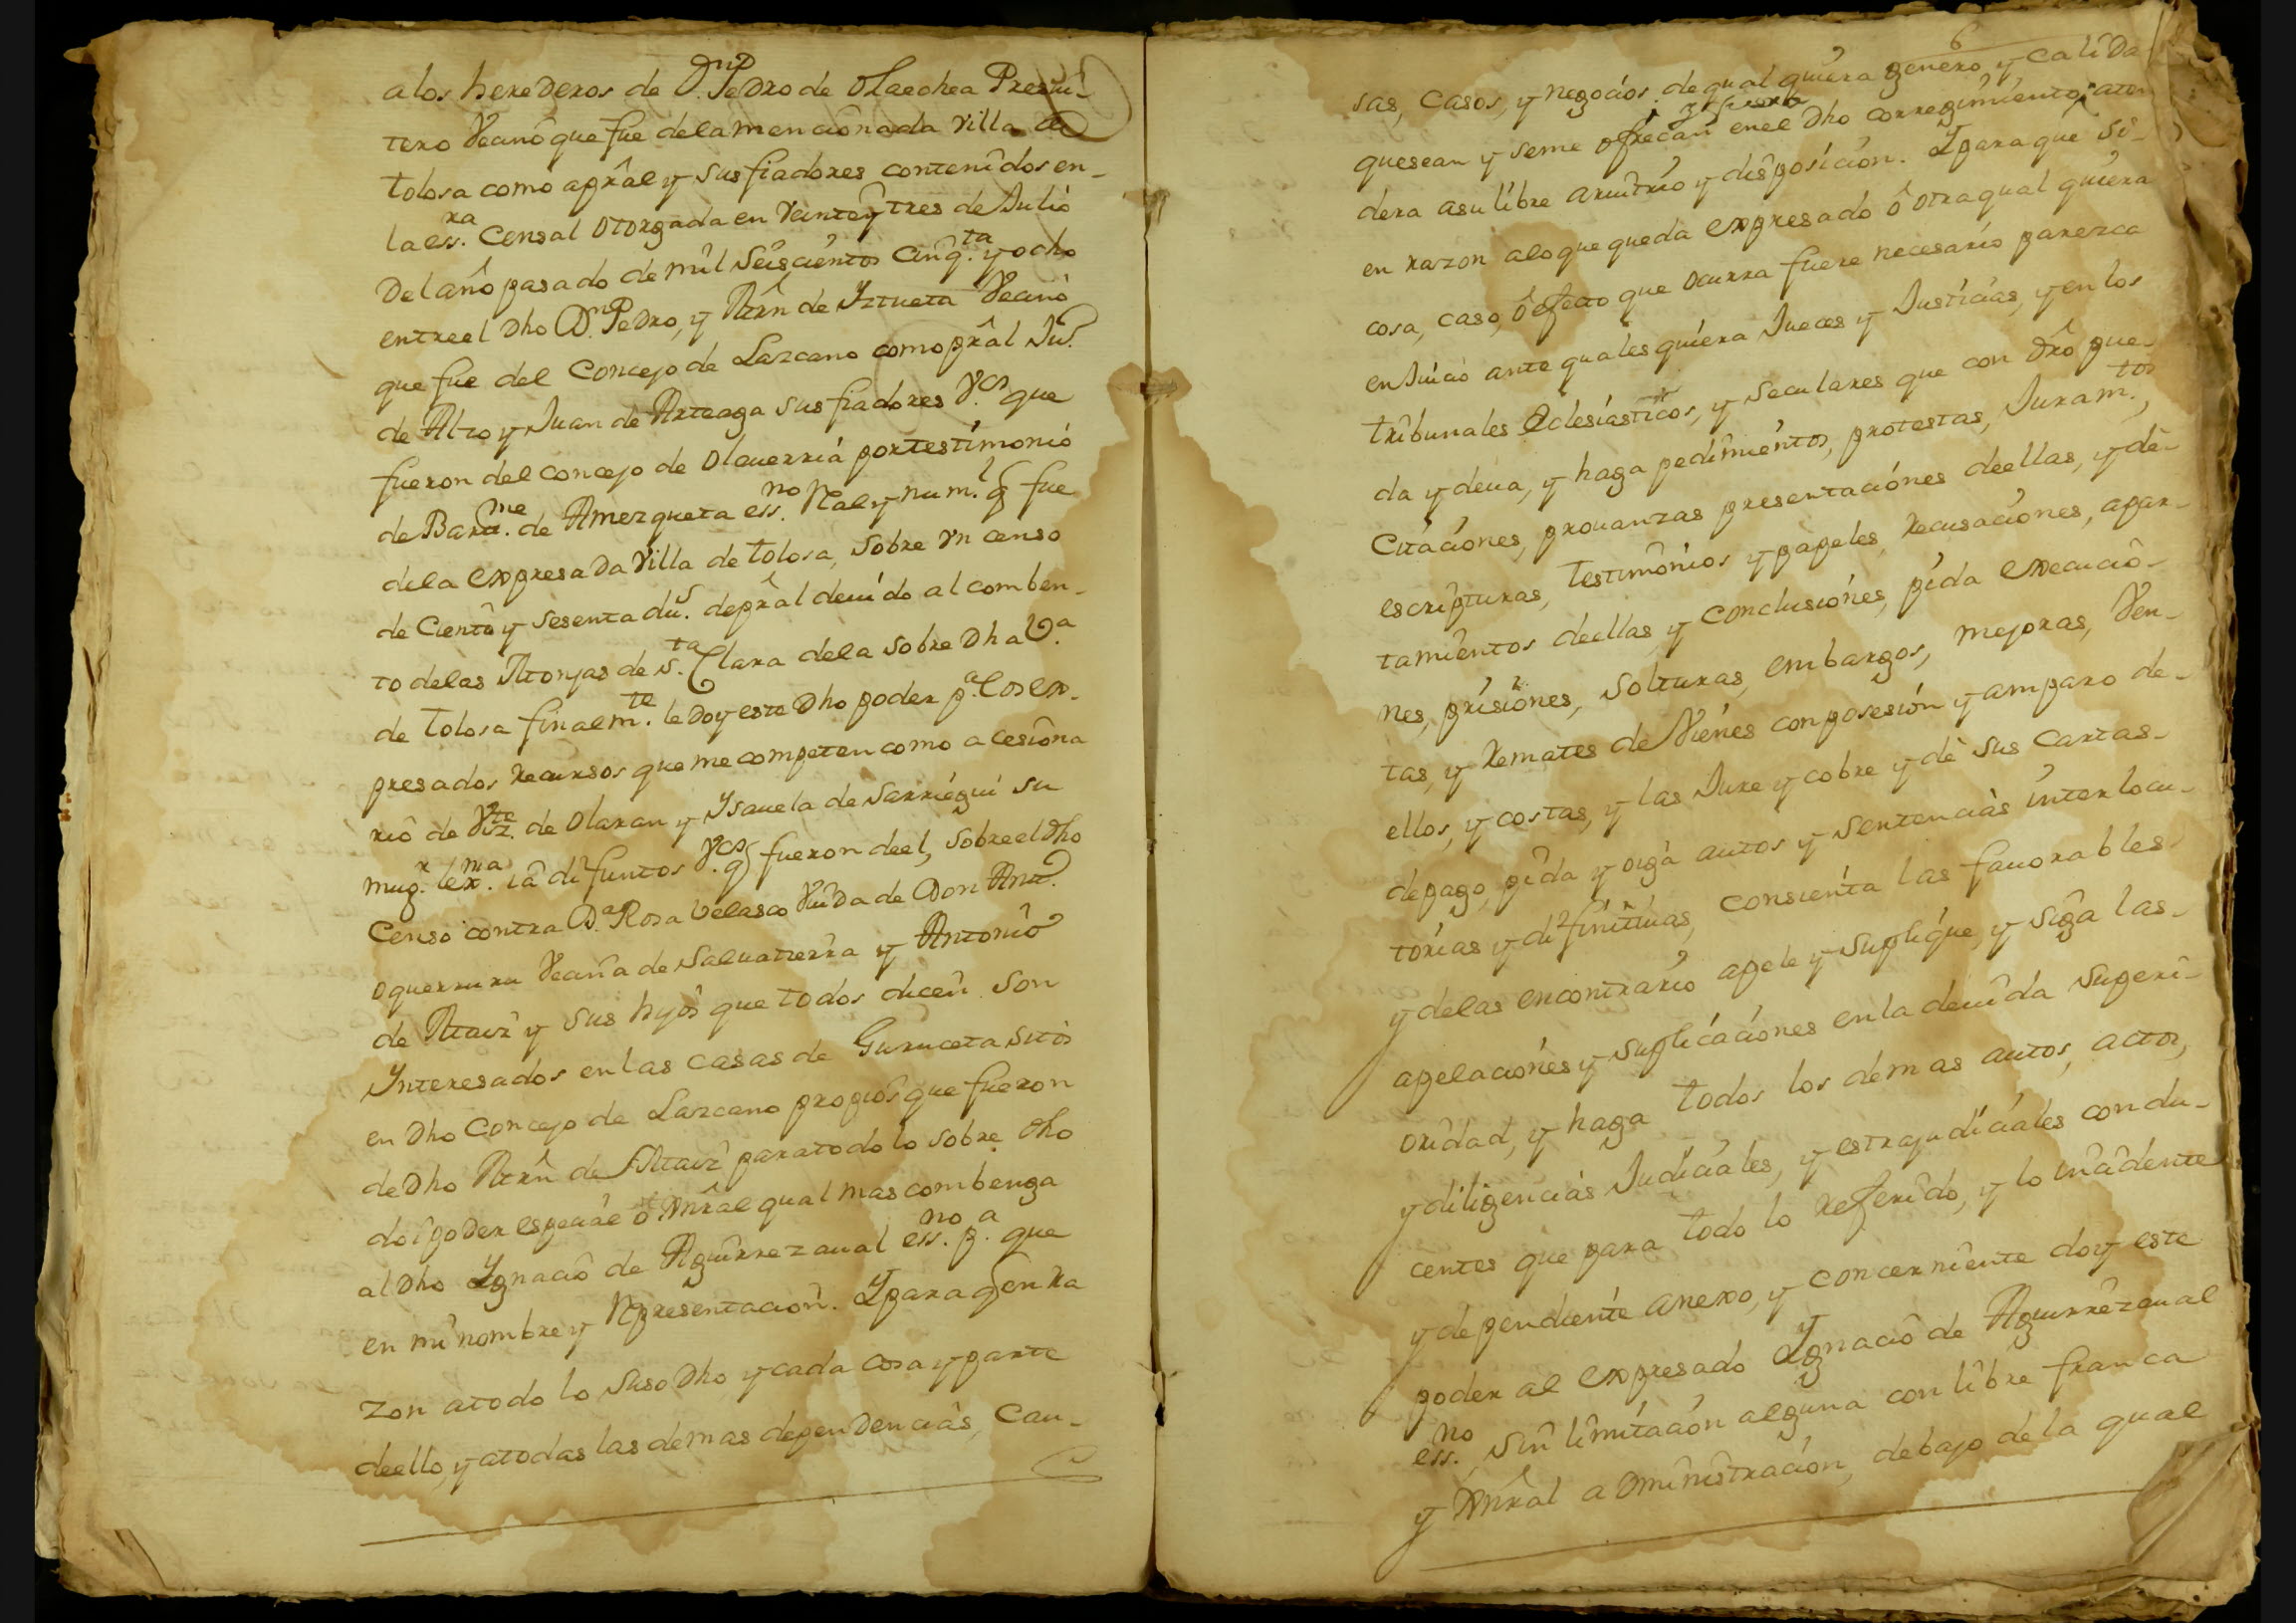 a los herederos de Dn. Pedro de Olaechea Presui-
tero Vecino que fue dela mencionada Villa de
tolosa como apräl y sus fiadores contenidos en-
la essra. Censal otorgada en Veinte y tres de Julio
Del año pasado de mil Seiscientos Cinqta. y ocho
entre el Dho Dn. Pedro, y Mrñ de Yztueta Vecino
que fue del Concejo de Lazcano como präl Ju.
de Alzo y Juan de Arteaga sus fiadores Vcs. que
fueron del concejo de olauerria por testimonio
de Barme. de Amezqueta essno. Real y numl. q fue
dela expresada Villa de tolosa, sobre Vn censo
de Ciento y sesenta dus. de präl deuido al comben-
to delas Monjas de sta. Clara dela sobre Dha Va.
de tolosa finalmte. le doy este Dho poder pa. los ex-
presados Recursos que me competen como a cesiona
rio de Vte. de Olaran y Ysauela de Sarriegui su
mugr. lexma. ia difuntos Vcs. q fueron deel, sobre el dho
Censo contra Da. Rosa Velasco Viuda de Don Anto.
oquerruru Vecina de Saluatierra y Antonio
de Mauiz y sus hijos que todos dicen son
Interesados en las casas de Guruceta sitos
en Dho Concejo de Lazcano propios que fueron
de Dho Mrñ de Mauiz para todo lo sobre dho
doi poder especial ô Gnrâl qual mas combenga
al Dho Ygnacio de Aguirrezaual essno. pa. que
en mi nombre y Representacion. Y para q en Ra
zon atodo lo Suso Dho y cada cosa y parte
deello, y atodas las demas dependencias, Cau-
6
sas, casos, y negocios de qual quiera genero, y calida
quesean y seme ofrecan enel Dho corregimiento, aten
dera asu libre aruitrio y disposicion. Y para que si-
en razon alo que queda expresado ô otra qual quiera
cosa, caso, ô efecto que ocurra fuere necesario parezca
en Juicio ante quales quiera Jueces y Justicias, y en los
tribunales Eclesiasticos, y seculares que con drô pue-
da y deua, y haga pedimientos, protestas, Juramtos.,
Citaciones, prouanzas presentaciones deellas, y de-
escripturas, testimonios y papeles, Recusaciones, apar-
tamientos deellas, y conclusiones, pida execucio-
nes, prisiones, solturas, embargos, mejoras, Ven-
tas, y Remates de Vienes con posesion y amparo de-
ellos, y costas, y las Jure y cobre y dè sus cartas-
depago, pida y oiga autos y sentencias interlocu-
torias y difinitiuas, consienta las fauorables
y delas encontrario apele y suplique, y siga las-
apelaciones y suplicaciones en la deuida superi-
oridad, y haga todos los demas autos, actos,
y diligencias Judiciales, y estrajudiciales condu-
centes que para todo lo Referido, y lo incidente
y dependiente anexo, y concerniente doy este
poder al expresado Ygnacio de Aguirrezaual
essno. sin limitacion alguna con libre franca
y Gnrâl administracion, debajo dela qual